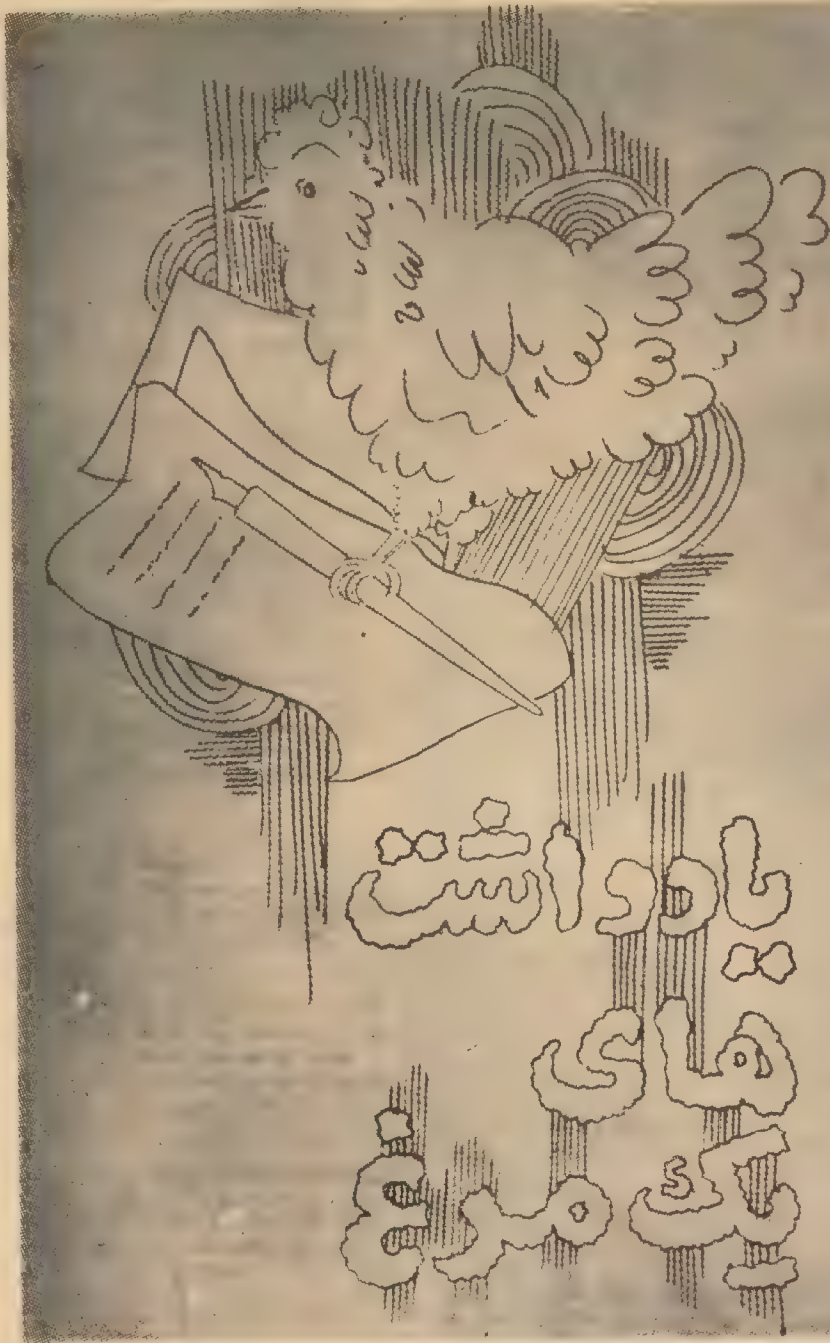 یادداشت
های
یک مرغ